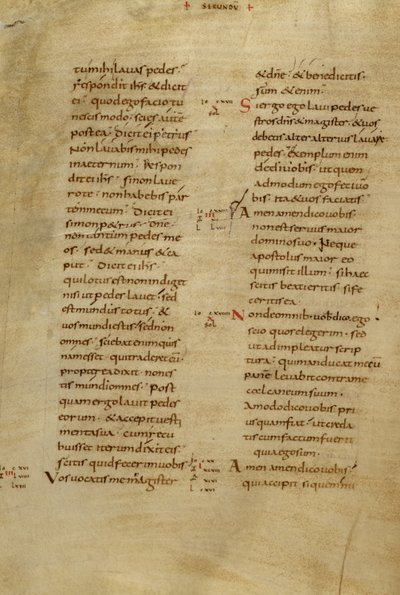 + SECUNDU +
tu mihi lavas pedes
respondit ihs & dicit
ei · quod ego facio tu
nescis modo · scies aute
postea · Dicit ei petrus
Non lavabis mihi pedes
in aeternum · Respon
dit ei ihs · si non lave
ro te · non habebis par
tem mecum · Dicit ei
simon petrus · dne ·
non tantum pedes me
os · sed & manus & ca
put · Dicit ei ihs ·
qui lotus est non indiget
nisi ut pedes lavet · sed
est mundus totus · &
vos mundi estis · sed non
omnes · sciebat enim quis
nam esset · qui traderet eu ·
propterea dixit · non es
tis mundi omnes · Post
quam ergo lavit pedes
eorum · & accepit vesti
menta sua · cum recu
buisset iterum dixit eis ·
scitis quid fecerim vobis ·
Vos vocatis me magister
& dne · & benedicitis ·
sum & enim ·
Si ergo ego lavi pedes ve
stros dns & magister · & vos
debetis alter alterius lavare
pedes · exemplum enim
dedi vobis · ut quem
admodum ego feci vo
bis · ita & vos faciatis
Amen amen dico vobis
non est servus maior
domino suo · Neque
apostolus maior eo
qui misit illum · si haec
scitis beati eritis · si fe
ceritis ea ·
Non de omnib· vobis dico · ego
scio quos elegerim · sed
ut adimpleatur scrip
tura · qui manducat mecu
pane · levabit contra me
calcaneum suum ·
Amodo dico vobis pri
usquam fiat · ut creda
tis cum factum fuerit
quia ego sum ·
Amen amen dico vobis ·
qui accipit si quem mi